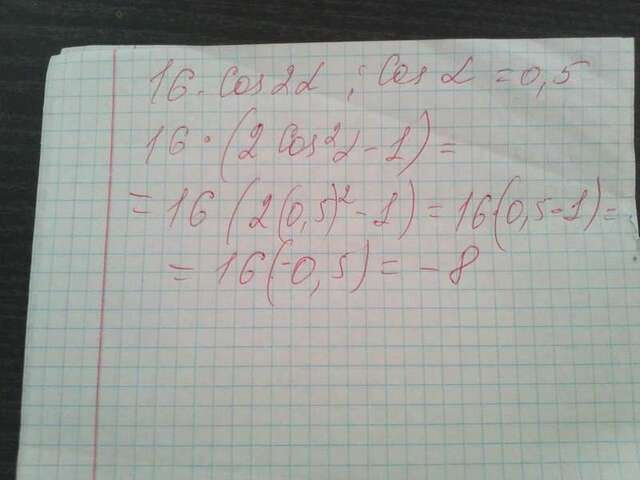 16 · cos 2α ; cos α = 0,5
16 · (2 cos²α - 1) =
= 16 (2(0,5)² - 1) = 16(0,5-1) =
= 16(-0,5) = -8